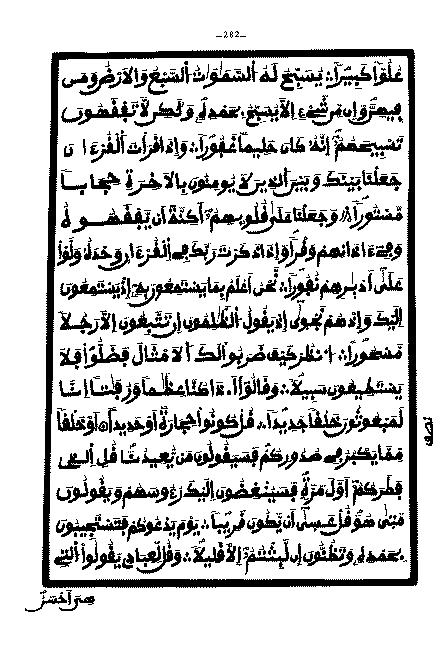 —282—
عُلُوّاً كَبِيراً ۞ يُسَبِّحُ لَهُ السَّمَٰوَٰتُ السَّبْعُ وَالْأَرْضُ وَمَن
فِيهِنَّ وَإِن مِّن شَيْءٍ اِلَّا يُسَبِّحُ بِحَمْدِهِ وَلَٰكِن لَّا تَفْقَهُونَ
تَسْبِيحَهُمْ إِنَّهُ كَانَ حَلِيماً غَفُوراً ۞ وَإِذَا قَرَأْتَ الْقُرْءَانَ
جَعَلْنَا بَيْنَكَ وَبَيْنَ الَّذِينَ لَا يُومِنُونَ بِالْآخِرَةِ حِجَاباً
مَّسْتُوراً ۞ وَجَعَلْنَا عَلَىٰ قُلُوبِهِمُ أَكِنَّةً أَن يَفْقَهُوهُ
وَفِي ءَاذَانِهِمْ وَقْراً وَإِذَا ذَكَرْتَ رَبَّكَ فِي الْقُرْءَانِ وَحْدَهُ وَلَّوْا
عَلَىٰ أَدْبَٰرِهِمْ نُفُوراً ۞ نَّحْنُ أَعْلَمُ بِمَا يَسْتَمِعُونَ بِهِ إِذْ يَسْتَمِعُونَ
إِلَيْكَ وَإِذْ هُمْ نَجْوَىٰ إِذْ يَقُولُ الظَّٰلِمُونَ إِن تَتَّبِعُونَ إِلَّا رَجُلاً
مَّسْحُوراً ۞ اُنظُرْ كَيْفَ ضَرَبُوا لَكَ الْأَمْثَالَ فَضَلُّوا فَلَا
يَسْتَطِيعُونَ سَبِيلاً ۞ وَقَالُوا أَ۟ذَا كُنَّا عِظَٰماً وَرُفَٰتاً إِنَّا
لَمَبْعُوثُونَ خَلْقاً جَدِيداً ۞ قُلْ كُونُوا حِجَارَةً أَوْ حَدِيداً ۞ أَوْ خَلْقاً
مِّمَّا يَكْبُرُ فِي صُدُورِكُمْ فَسَيَقُولُونَ مَن يُعِيدُنَا قُلِ الَّذِي
فَطَرَكُمُ أَوَّلَ مَرَّةٍ فَسَيُنْغِضُونَ إِلَيْكَ رُءُوسَهُمْ وَيَقُولُونَ
مَتَىٰ هُوَ قُلْ عَسَىٰ أَن يَّكُونَ قَرِيباً ۞ يَوْمَ يَدْعُوكُمْ فَتَسْتَجِيبُونَ
بِحَمْدِهِ وَتَظُنُّونَ إِن لَّبِثْتُمُ إِلَّا قَلِيلاً ۞ وَقُل لِّعِبَادِي يَقُولُوا الَّتِي
نصف
هي أحسن